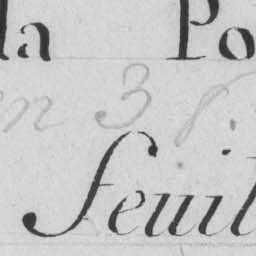 la Po
en 38.
feuil